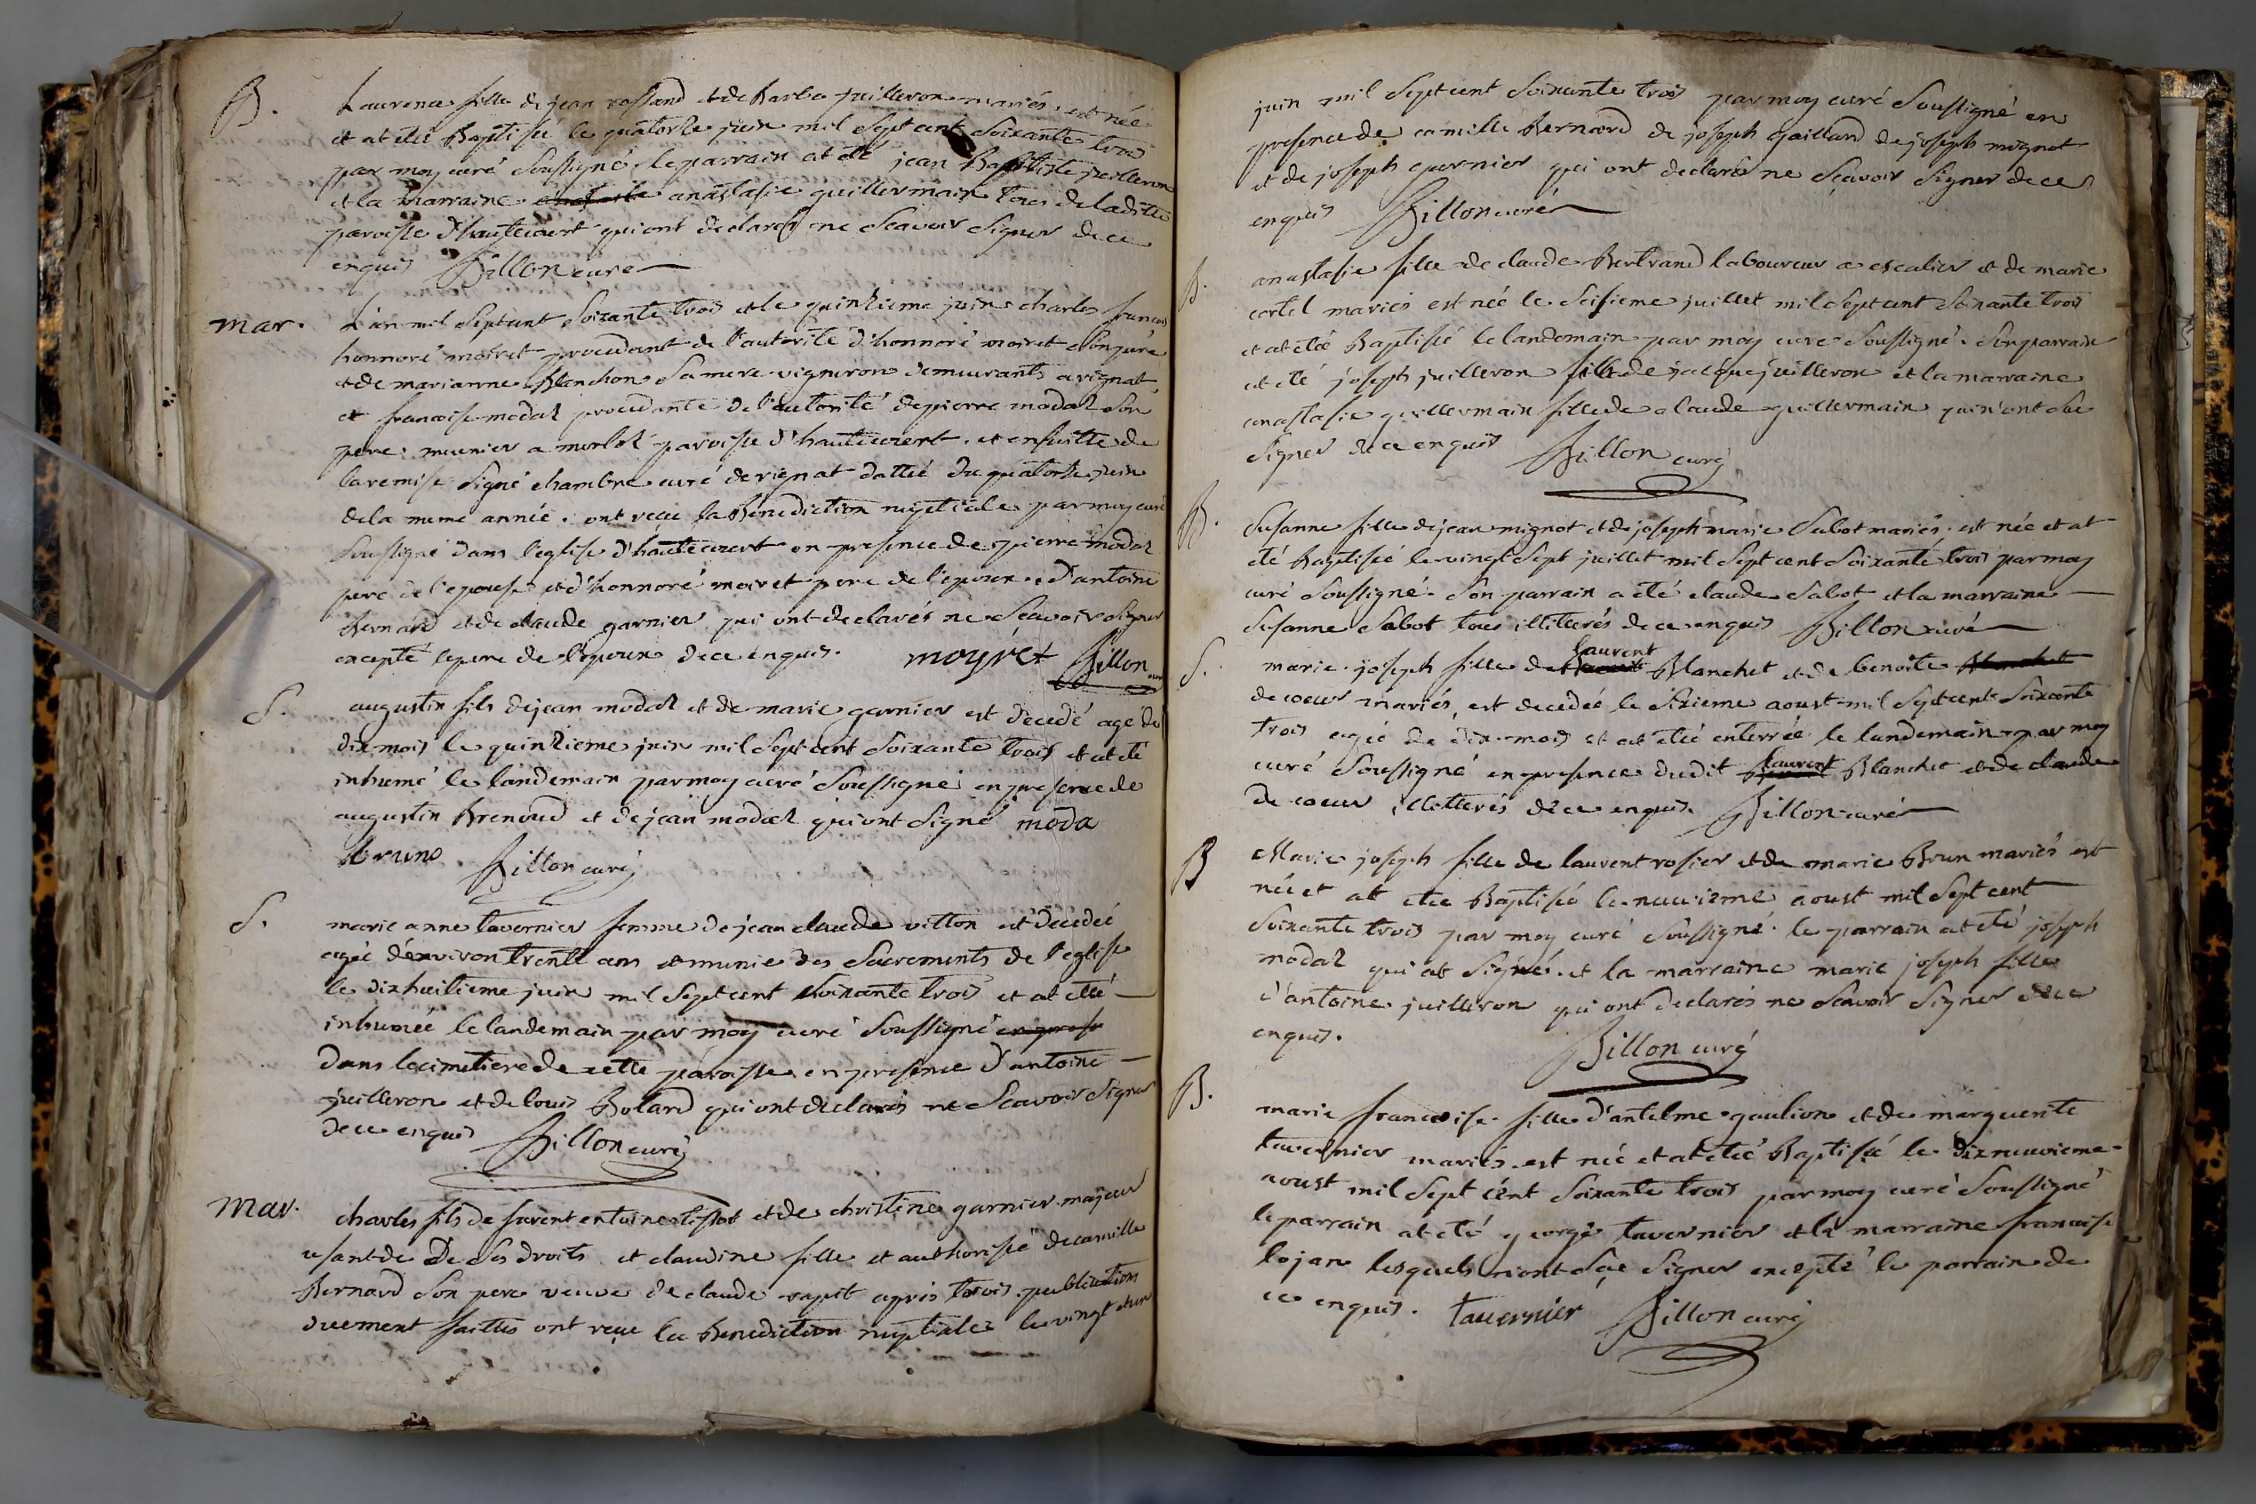 B.
Laurence fille de jean rossand et de Barbe juilleron mariés. est née
et at eté Baptisé le quatorze juin mil sept cent soixante trois
par moy curé soussigné. le parrain at eté jean Baptiste juilleron
et la marraine anastasie guillermain tous de la ditte
paroisse d'hautecourt qui ont declarés ne scavoir signer de ce
enquis Billon curé
mar.
L'an mil sept cent soixante trois et le quinzieme juin charles francois
honnoré moiret procedant de l'autorité d'honnoré moiret son pere
et de marianne Blanchon sa mere vigneron demeurants a rignat
et francoise modaz procedante de l'autorité de pierre modaz son
pere munier a paroisse d'hautecourt. et ensuitte de
la remise signé chambre curé de rignat dattée du quatorze juin
de la meme année. ont recue la Benediction nuptiale par moy curé
soussigné dans l'eglise d'hautecourt en presence de pierre modaz
pere de l'epouse et d'honnoré moiret pere de l'epoux. d'antoine
Bernard et de claude garnier qui ont declarés ne scavoir signer
excepté le pere de l'epoux de ce enquis. moyret Billon curé
S.
augustin fils de jean modaz et de marie garnier est decedé agé de
dix mois le quinzieme juin mil sept cent soixante trois et at eté
inhumé le landemain par moy curé soussigné en presence de
augustin Brenoud et de jean modaz qui ont signé moda
Billon curé
S.
marie anne tavernier femme de jean claude vitton est decedée
agée d'environ trente ans et munie des sacrements de l'eglise
le dixhuitieme juin mil sept cent soixante trois et at eté
inhumée le landemain par moy curé soussigné en prese
dans le cimetiere de cette paroisse en presence d'antoine
juilleron et de louis Bolard qui ont declarés ne scavoir signer
de ce enquis Billon curé
Mar.
charles fils de furent antoine tissot et de christine garnier majeur
usant de De ses droits et claudine fille et authorisée de camille
Bernard son pere veuve de claude rapit apris trois publications
duement faittes ont recue la Benediction nuptiale le vingt et un
juin mil sept cent soixante trois par moy curé soussigné en
presence de camille Bernard de joseph gaillard de joseph mignot
et de joseph guernier qui ont declarés ne scavoir signer de ce
enquis Billon curé
B.
anastasie fille de claude Bertrand laboureur a escalier et de marie
cortel mariés est née le seisieme juillet mil sept cent soixante trois
et at eté Baptisé le landemain par moy curé soussigné. son parrain
at eté joseph juilleron fille de jacque juilleron et la marraine
anastasie guillermain fille de claude guillermain qui n'ont sue
signer de ce enquis Billon curé
B.
Susanne fille de jean mignot et de joseph marie Sabot mariés, est née et at
eté Baptisée le vingt sept juillet mil sept cent soixante trois par moy
curé soussigné. son parrain a eté claude Sabot et la marraine
Susanne Sabot tous illitterés de ce enquis Billon curé
S.
marie joseph fille de laurent Blanchet et de benoite Blanchet
de coeur mariés, est decedée le sixieme aoust mil sept cent soixante
trois agée de dix mois et at eté enterrée le landemain par moy
curé soussigné en presence dudit laurent Blanchet et de claude
de coeur illitterés de ce enquis. Billon curé
B
Marie joseph fille de laurent rosier et de marie Brun mariés est
née et at etée Baptisée le neuvieme aoust mil sept cent
soixante trois par moy curé soussigné. le parrain at eté joseph
modaz qui at signé. et la marraine marie joseph fille
d'antoine juilleron qui ont declarés ne scavoir signer de ce
enquis. Billon curé
B.
marie francoise fille d'antelme gaulion et de marguerite
tavernier mariés est née et at eté Baptisée le dix neuvieme
aoust mil sept cent soixante trois par moy curé soussigné
le parrain at eté george tavernier et la marraine francoise
lojan lesquels n'ont sçue signer excepté le parrain de
ce enquis. tavernier Billon curé